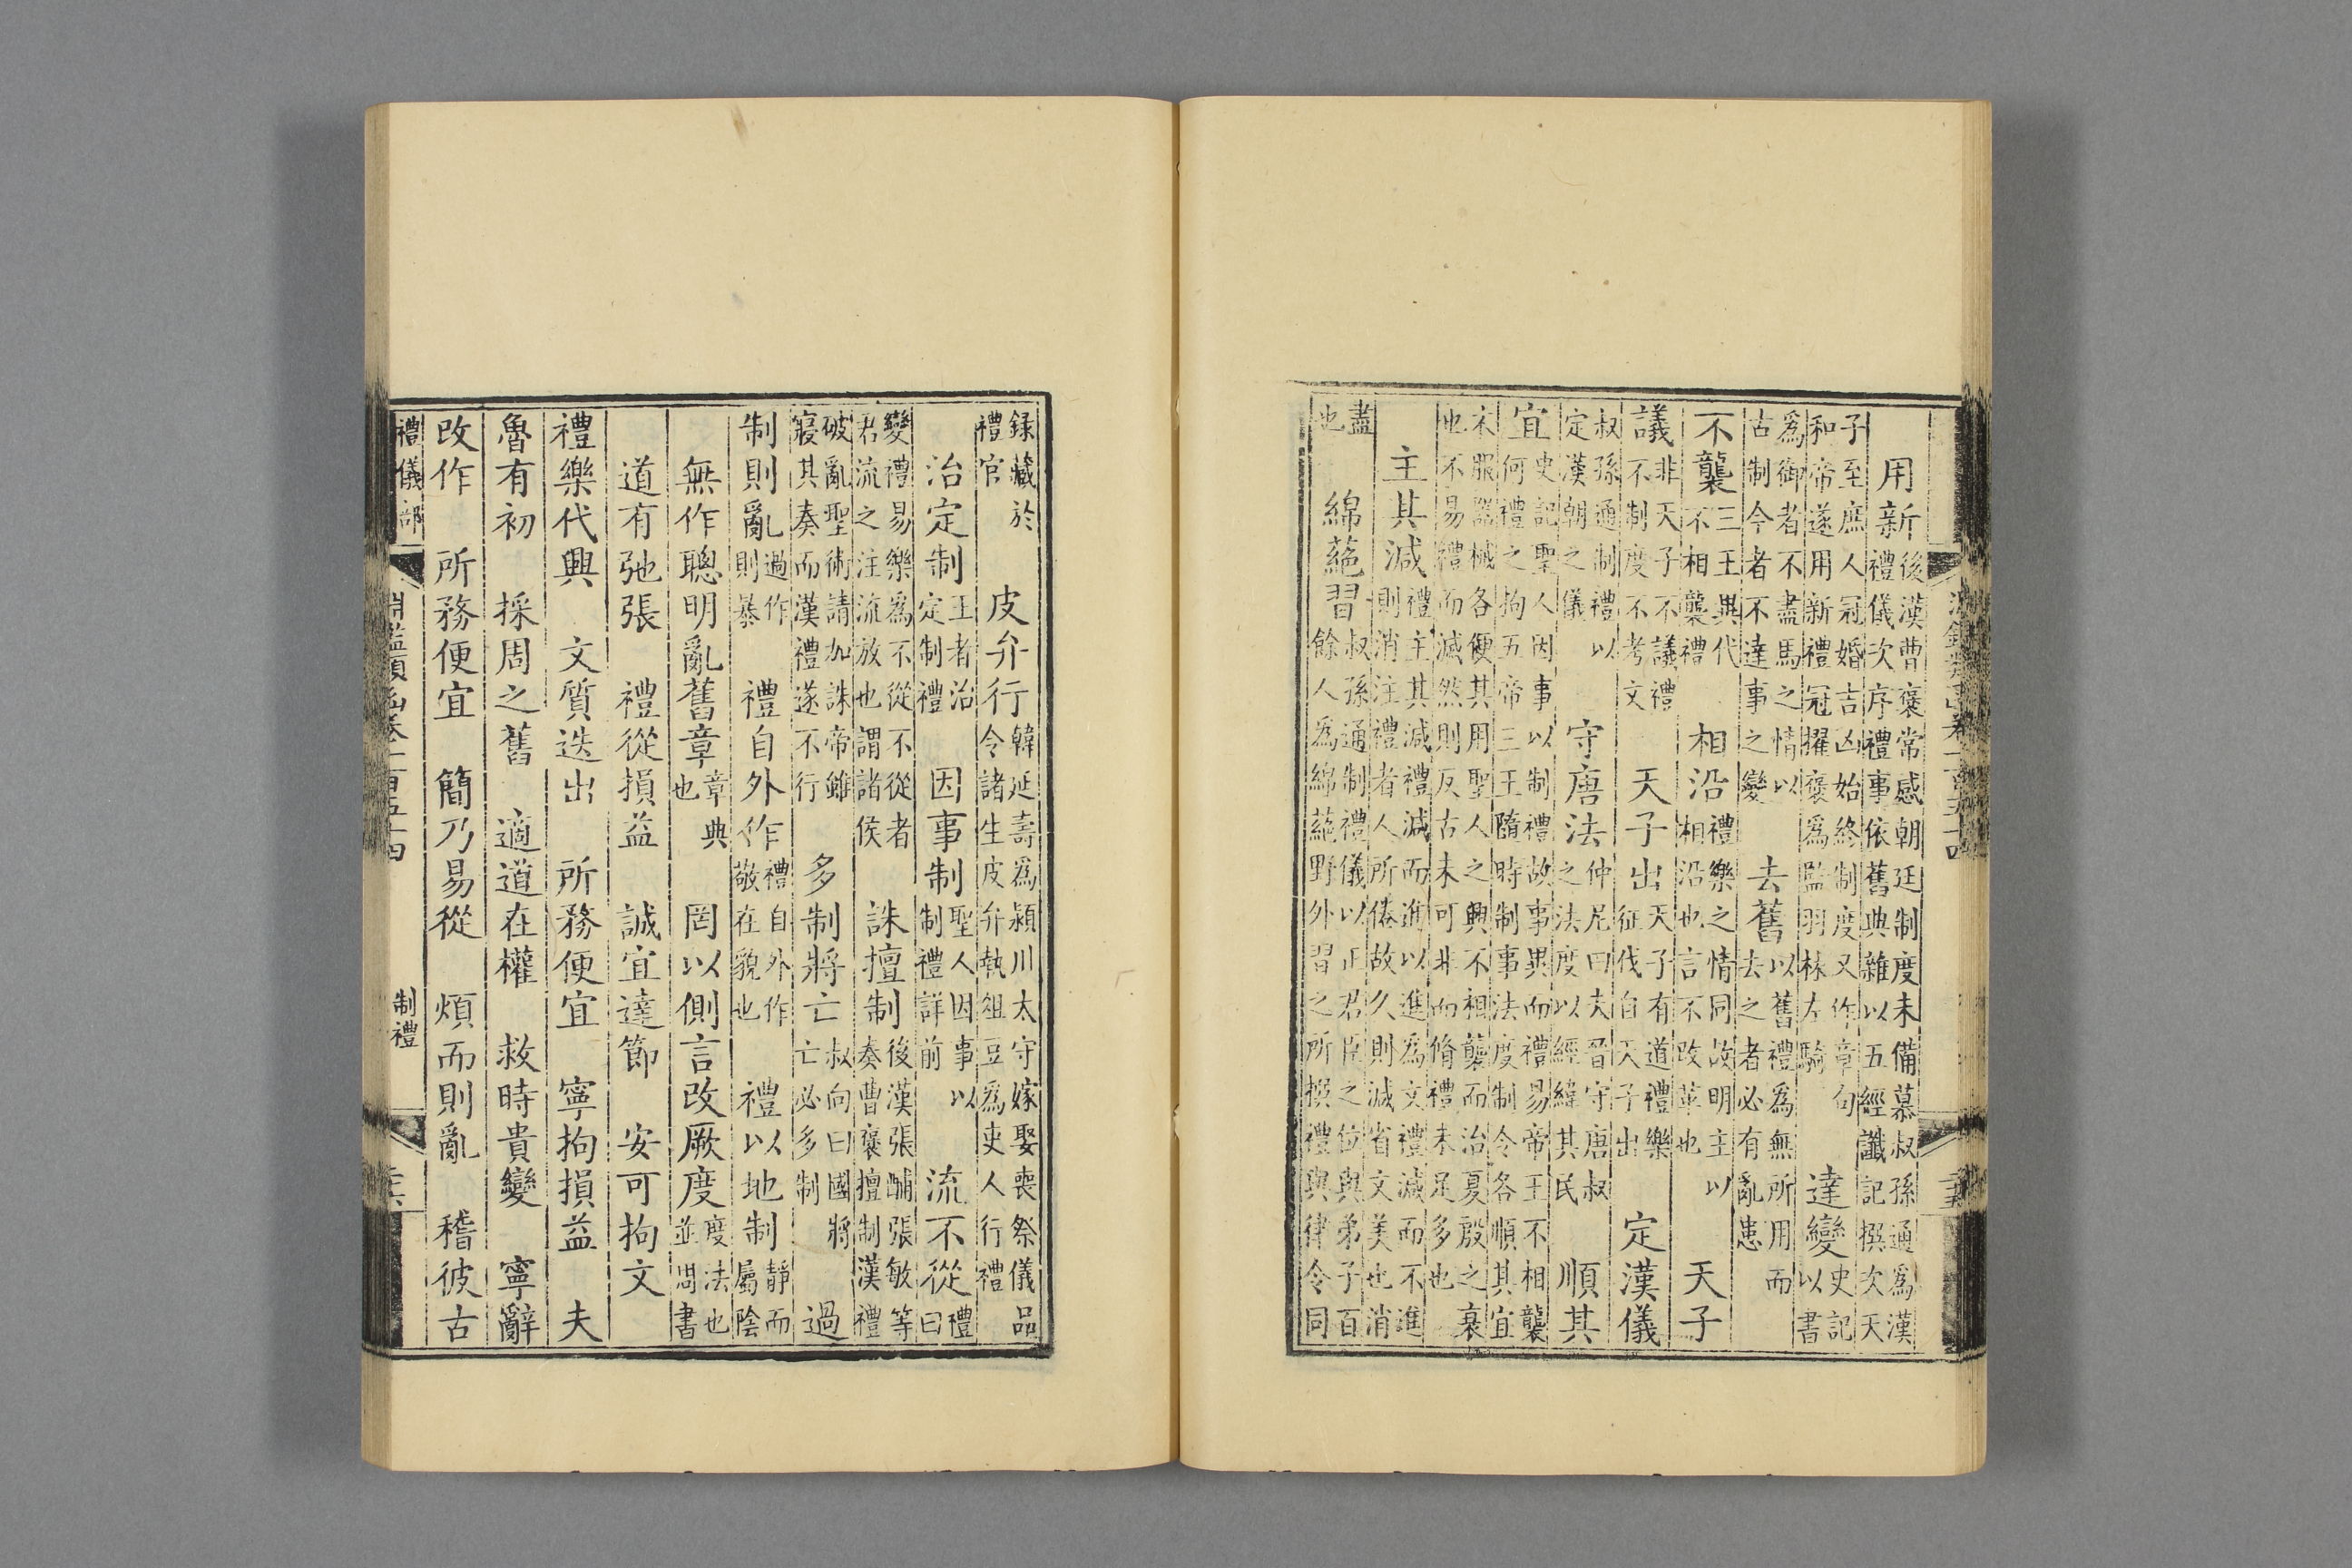 用新後漢曹褒常感朝廷制度未備慕叔孫通爲漢
禮儀次序禮事依舊典雜以五經讖記撰次天
子至庶人冠婚吉凶始終制度又作章句
和帝遂用新禮冠擢褒爲監羽林左騎達變史記
以書
爲御者不盡馬之情以
古制今者不達事之變去舊以舊禮爲無所用而
去之者必有亂患
不襲三王異代
不相襲禮相沿禮樂之情同故明主以
相沿也言不改革也天子
議非天子不議禮
不制度不考文天子出天子有道禮樂
征伐自天子出定漢儀
叔孫通制禮以
定漢朝之儀守唐法仲尼曰夫晉守唐叔
之法度以經緯其民順其
宜史記聖人因事以制禮故事異而禮易帝王不相襲
何禮之拘五帝三王隨時制事法度制令各順其宜
衣服器械各便其用聖人之興不相襲而治夏殷之衰
也不易禮而滅然則反古未可非而脩禮未足多也
主其減禮主其減禮減而進以進爲文禮減而不進
則消注禮者人所倦故久則減省文美也消
盡
也綿蕝習叔孫通制禮儀以正君臣之位與弟子百
餘人爲綿蕝野外習之所撰禮與律令同
錄藏於
禮官皮弁行韓延壽爲潁川太守嫁娶喪祭儀品
令諸生皮弁執俎豆爲吏人行禮
治定制王者治
定制禮因事制聖人因事以
制禮詳前流不從禮
曰
變禮易樂爲不從不從者
君流之注流放也謂諸侯誅擅制後漢張酺張敏等
奏曹褒擅制漢禮
破亂聖術請加誅帝雖
寢其奏而漢禮遂不行多制將亡叔向曰國將
亡必多制過
制則亂過作
則暴禮自外作禮自外作
敬在貌也禮以地制靜而
屬陰
無作聰明亂舊章章典
也罔以側言改厥度度法也
並尚書
道有弛張　禮從損益　誠宜達節　安可拘文
禮樂代興　文質迭出　所務便宜　寧拘損益　夫
魯有初　採周之舊　適道在權　救時貴變　寧辭
改作　所務便宜　簡乃易從　煩而則亂　稽彼古
禮儀部　淵鑑類函卷一百五十四　制禮